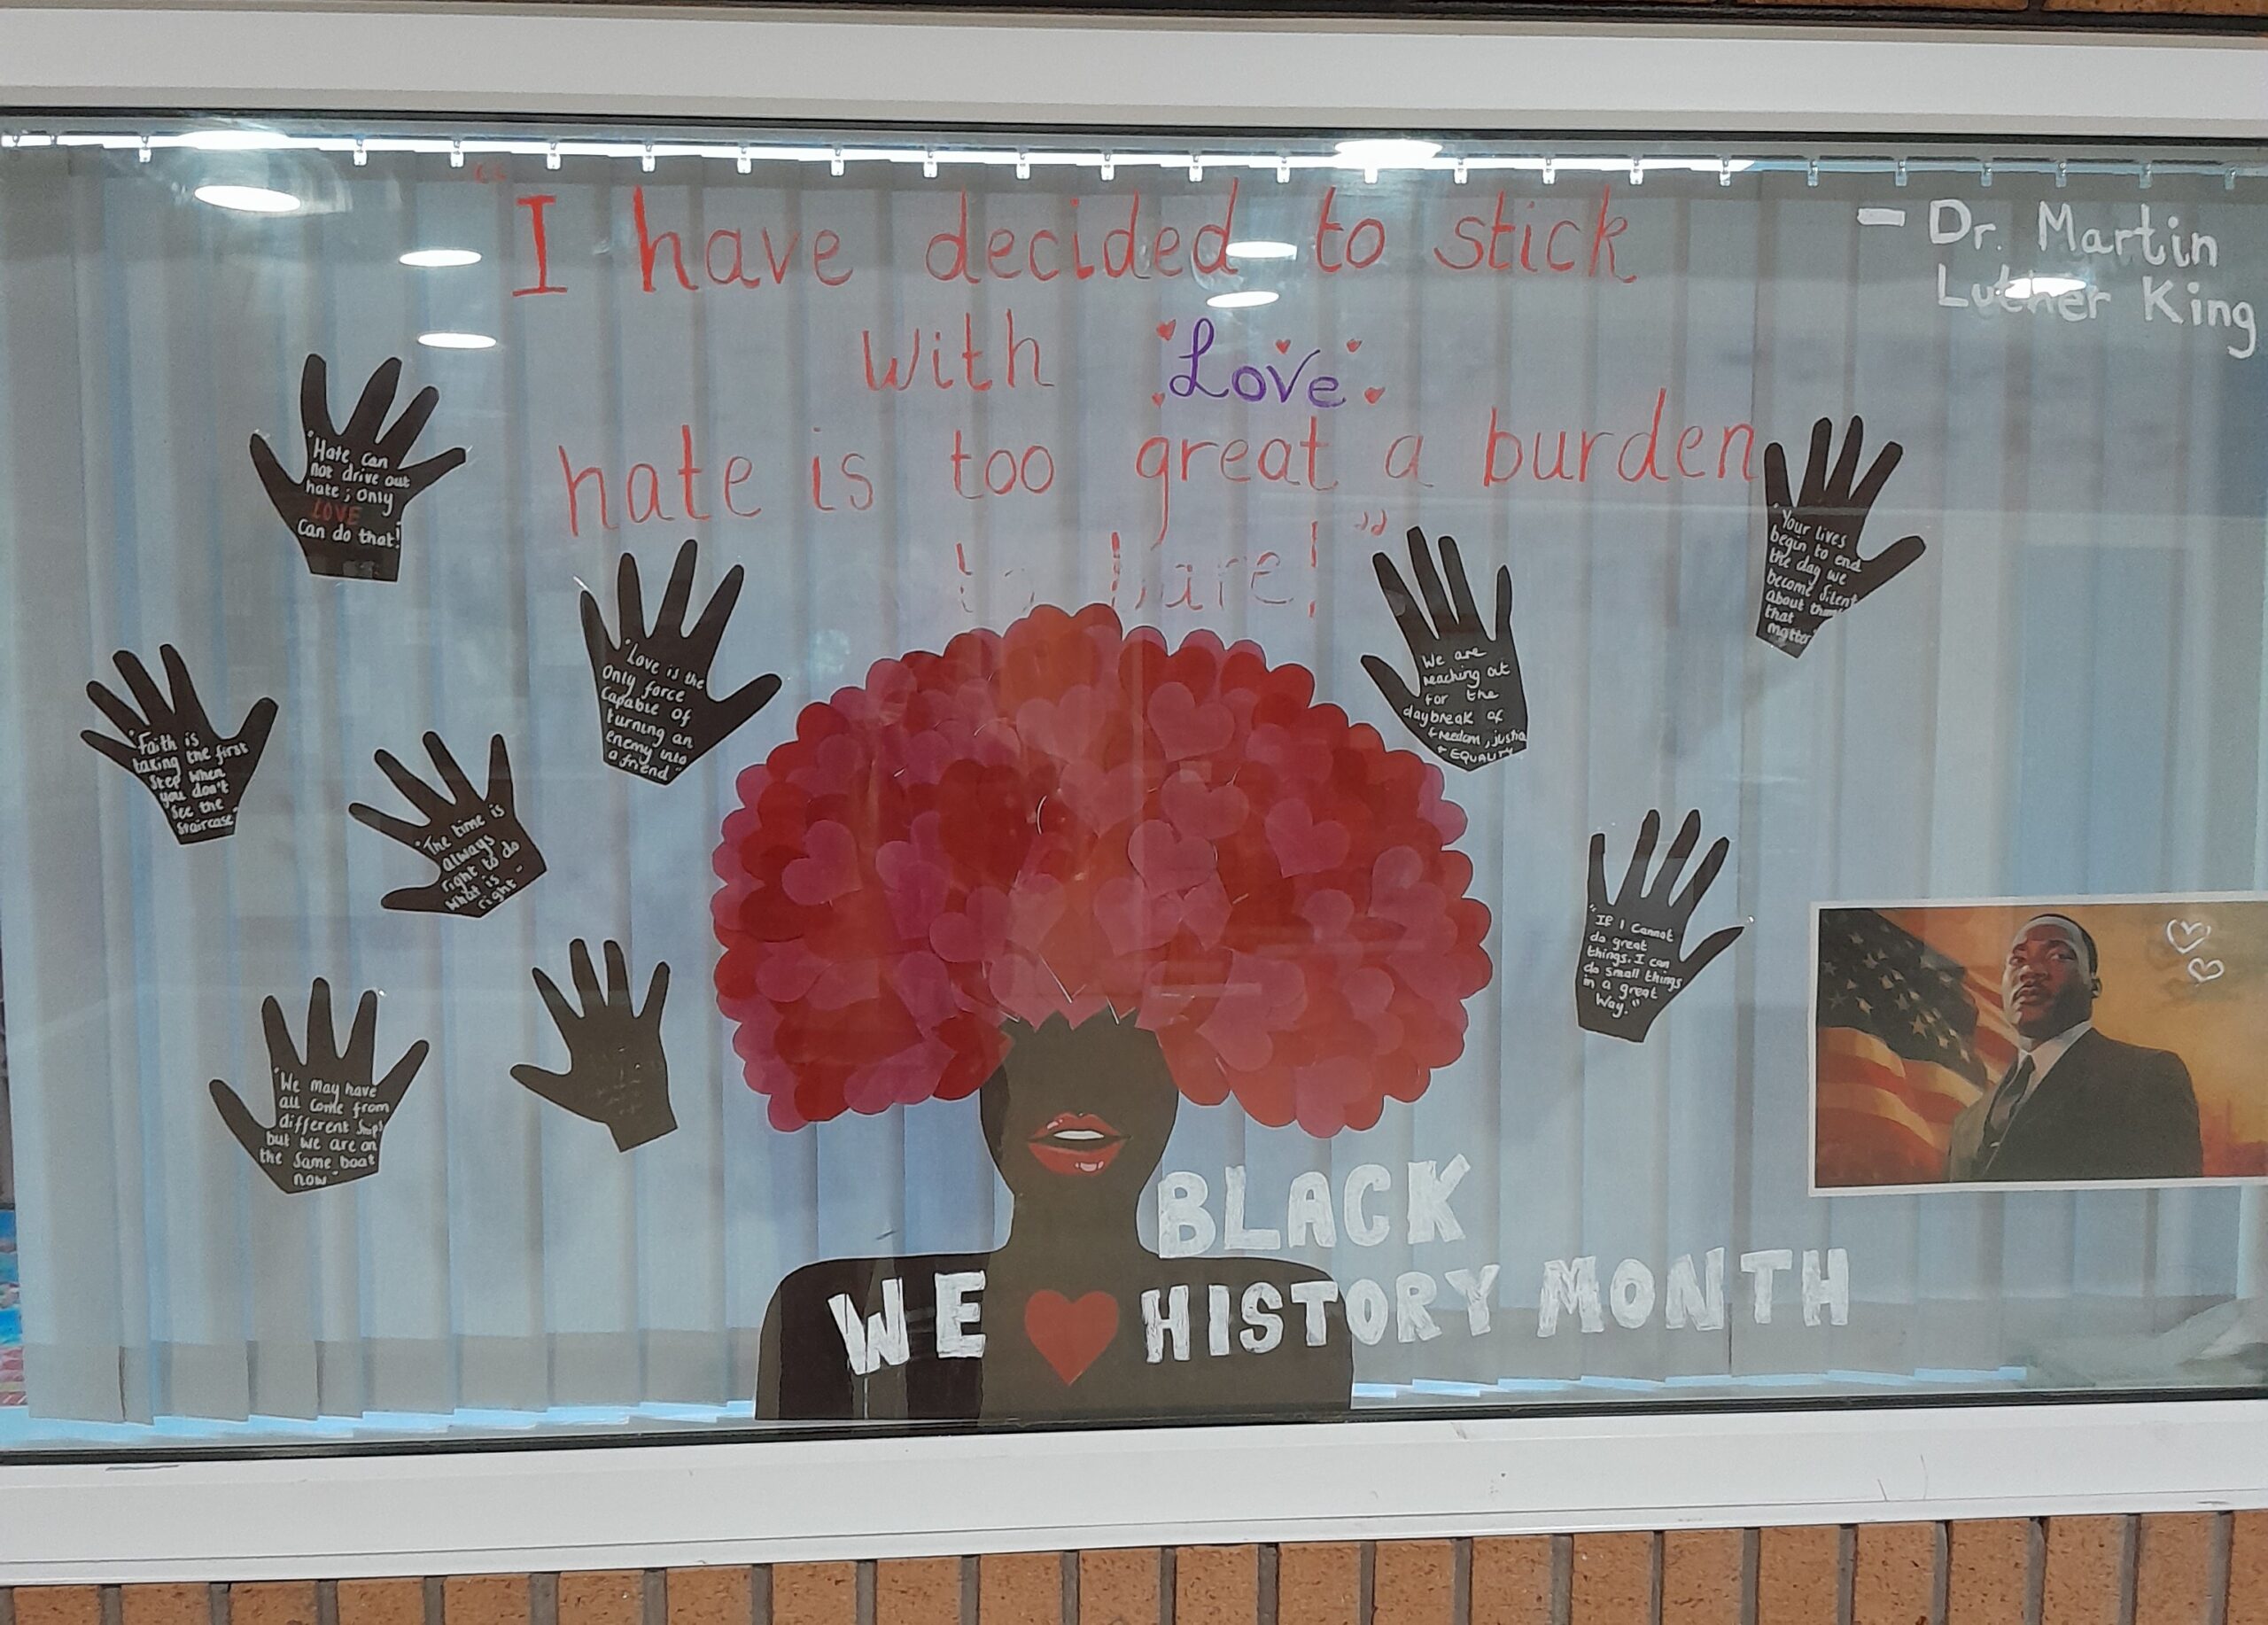 "I have decided to stick
with Love
hate is too great a burden
to bare!"
- Dr. Martin
Luther King
"Hate can
not drive out
hate; only
LOVE
Can do that!
"Love is the
only force
capable of
turning an
enemy into
a friend"
We are
reaching out
for the
daybreak of
freedom, justice
+ EQUALITY
"Your lives
begin to end
the day we
become silent
about
that
matter"
"Faith is
taking the first
step when
you don't
see the
staircase"
"The time is
always
right to do
what is
right"
"If I cannot
do great
things. I can
do small things
in a great
way."
"We may have
all come from
different ships
but we are on
the same boat
now"
BLACK
WE HISTORY MONTH